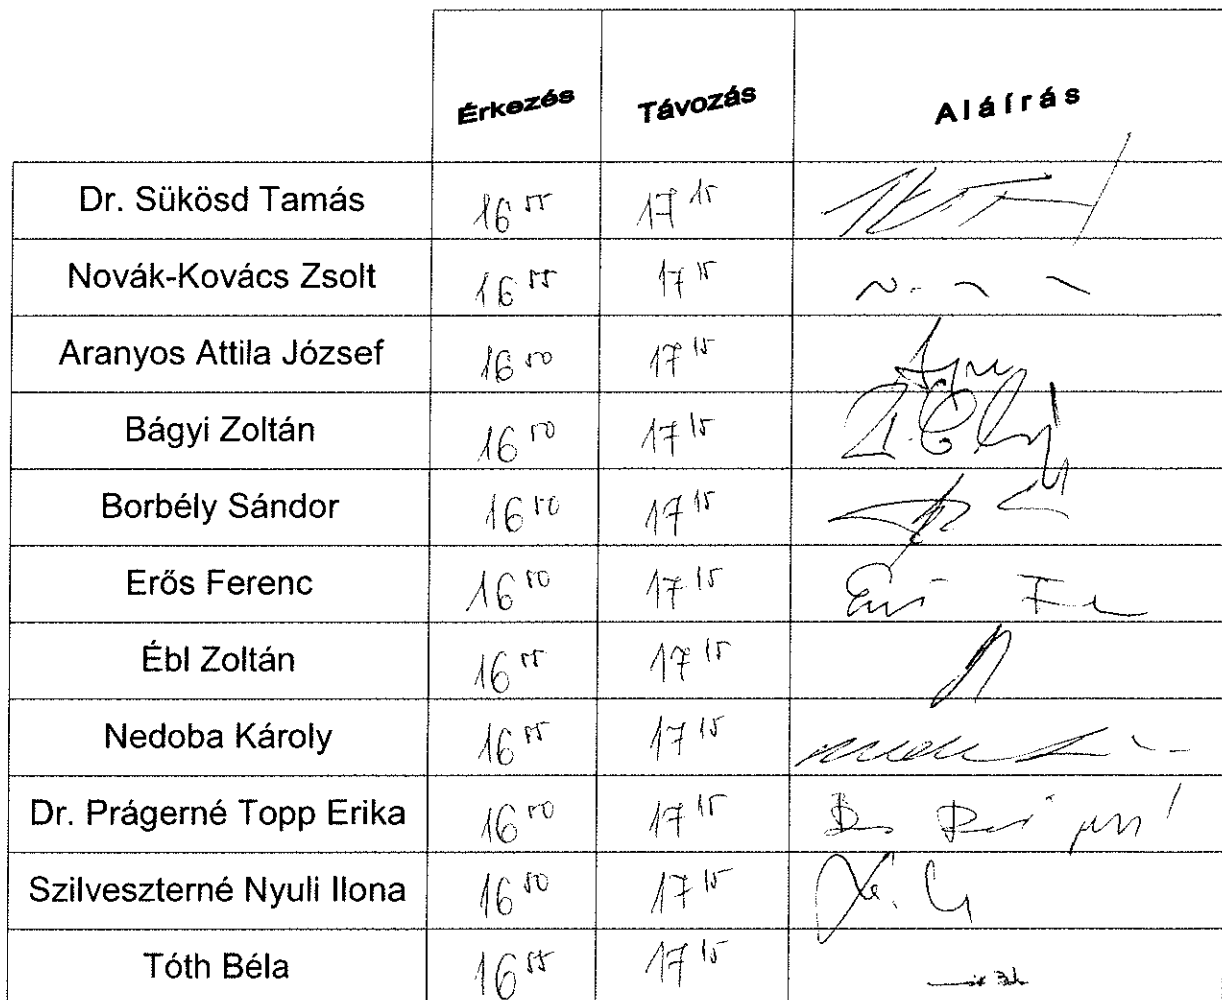 Érkezés Távozás Aláírás
Dr. Sükösd Tamás 16 55 17 15
Novák-Kovács Zsolt 16 55 17 15
Aranyos Attila József 16 50 17 15
Bágyi Zoltán 16 50 17 15
Borbély Sándor 16 50 17 15
Erős Ferenc 16 50 17 15
Ébl Zoltán 16 55 17 15
Nedoba Károly 16 55 17 15
Dr. Prágerné Topp Erika 16 50 17 15
Szilveszterné Nyuli Ilona 16 50 17 15
Tóth Béla 16 55 17 15